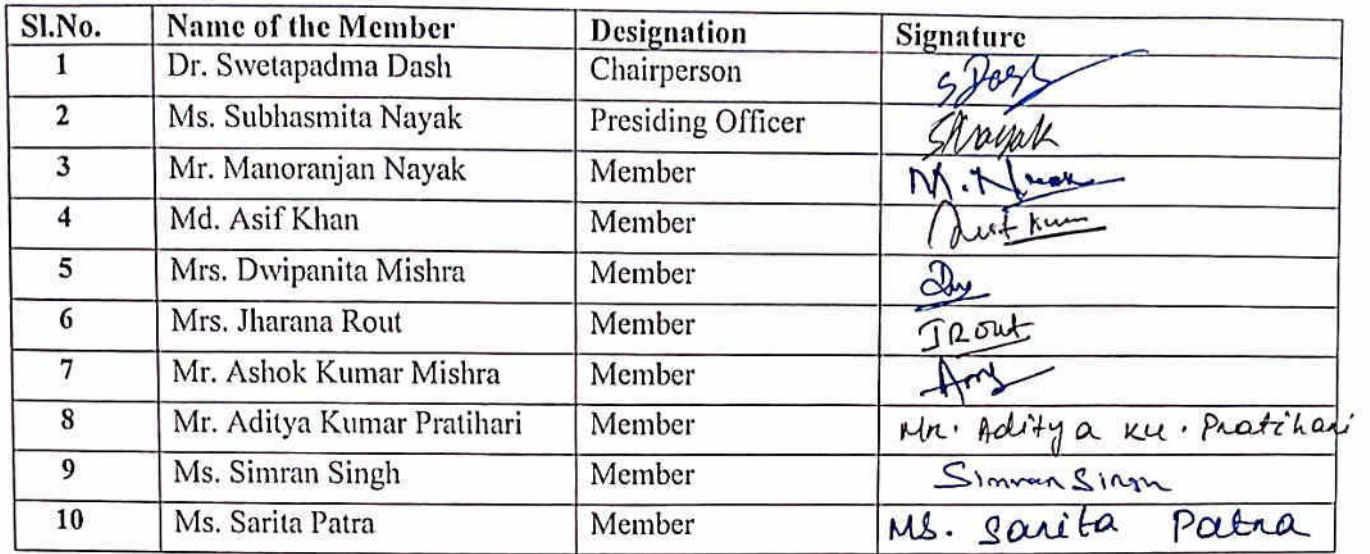 Sl.No. Name of the Member Designation Signature
1 Dr. Swetapadma Dash Chairperson SDash
2 Ms. Subhasmita Nayak Presiding Officer SNayak
3 Mr. Manoranjan Nayak Member M. Nayak
4 Md. Asif Khan Member
5 Mrs. Dwipanita Mishra Member
6 Mrs. Jharana Rout Member JRout
7 Mr. Ashok Kumar Mishra Member
8 Mr. Aditya Kumar Pratihari Member Mr. Aditya Ku. Pratihari
9 Ms. Simran Singh Member Simran Singh
10 Ms. Sarita Patra Member Ms. Sarita Patra